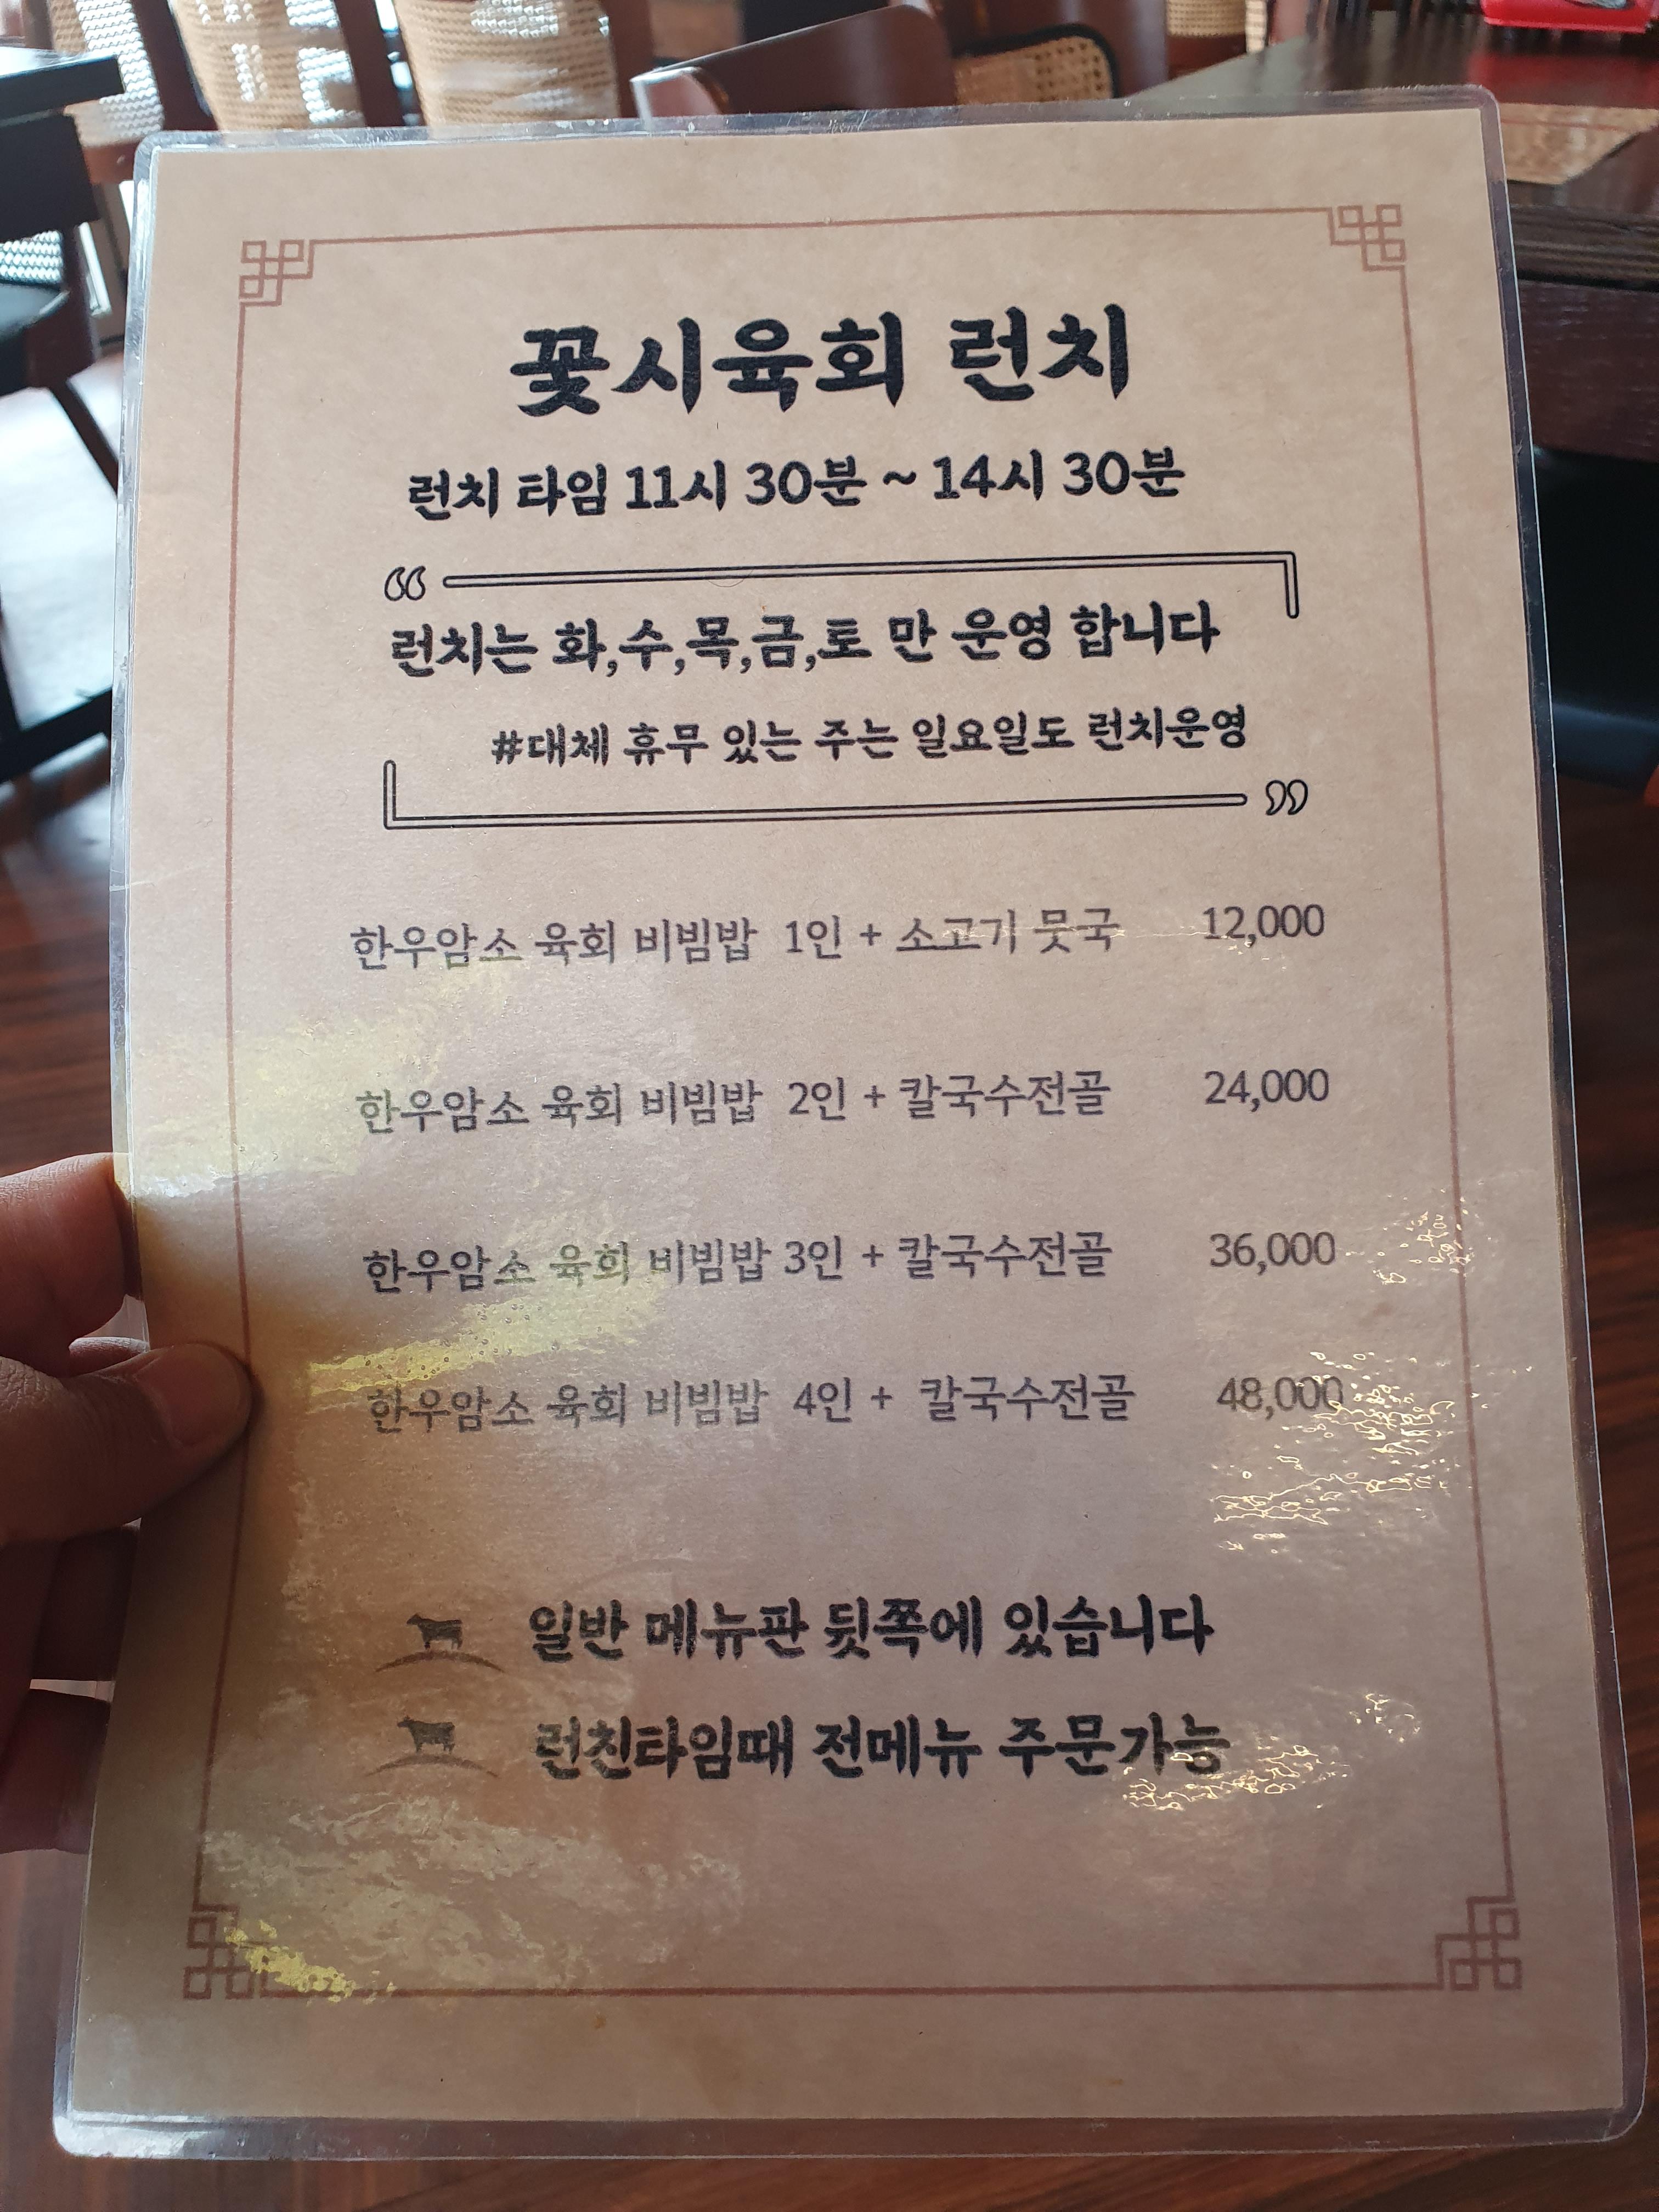 꽃시육회 런치
런치 타임 11시 30분 ~ 14시 30분
“
런치는 화,수,목,금,토 만 운영 합니다
#대체 휴무 있는 주는 일요일도 런치운영
”
한우암소 육회 비빔밥 1인 + 소고기 뭇국 12,000
한우암소 육회 비빔밥 2인 + 칼국수전골 24,000
한우암소 육회 비빔밥 3인 + 칼국수전골 36,000
한우암소 육회 비빔밥 4인 + 칼국수전골 48,000
일반 메뉴판 뒷쪽에 있습니다
런친타임때 전메뉴 주문가능